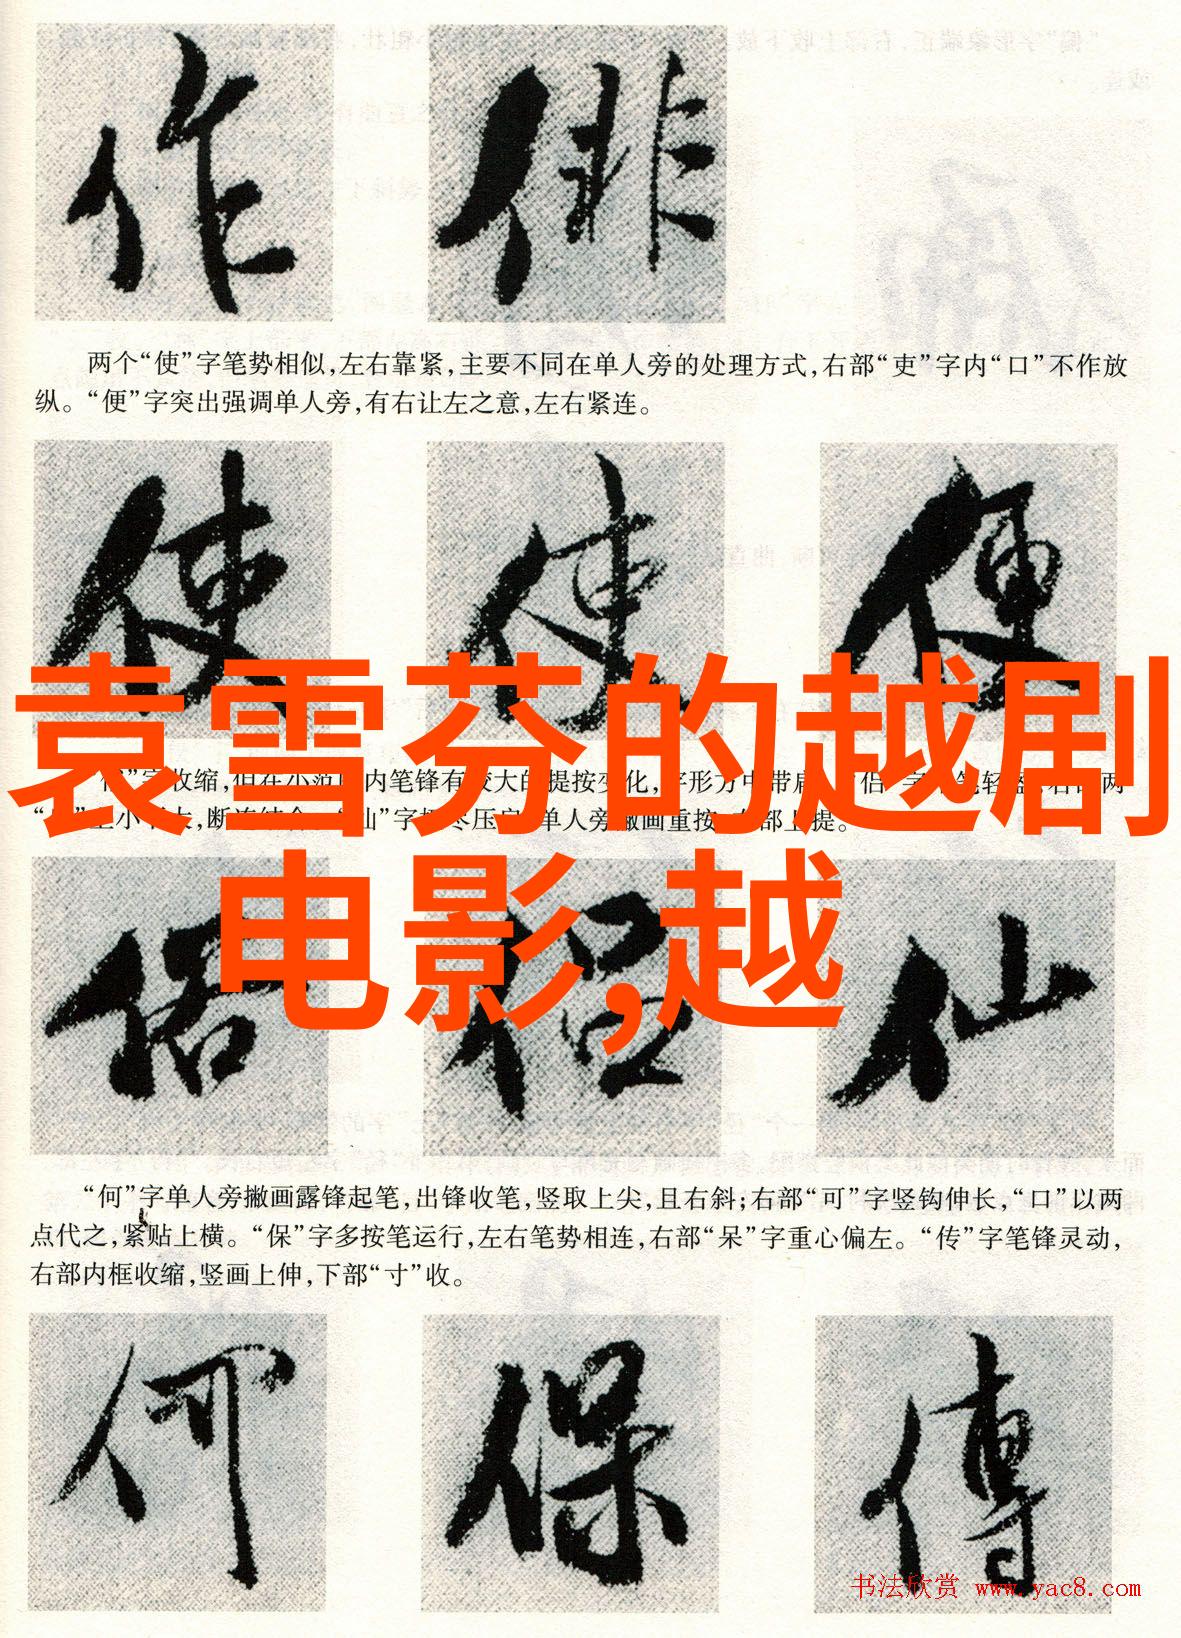 作 俳
两个“使”字笔势相似，左右靠紧，主要不同在单人旁的处理方式，右部“吏”字内“口”不作放
纵。“便”字突出强调单人旁，有右让左之意，左右紧连。
使 使 便
袁雪芬的越剧
字收缩，但在小范 内笔锋有较大的提按变化，字形方中带扁 侣
上小 断连结合 仙”字 压 单人旁撇画重按 部上提。
电影,越
偌 侣 仙
“何”字单人旁撇画露锋起笔，出锋收笔，竖取上尖，且右斜；右部“可”字竖钩伸长，“口”以两
点代之，紧贴上横。“保”字多按笔运行，左右笔势相连，右部“呆”字重心偏左。“传”字笔锋灵动，
右部内框收缩，竖画上伸，下部“寸”收。
何 保 傳
书法欣赏 www.yac8.com